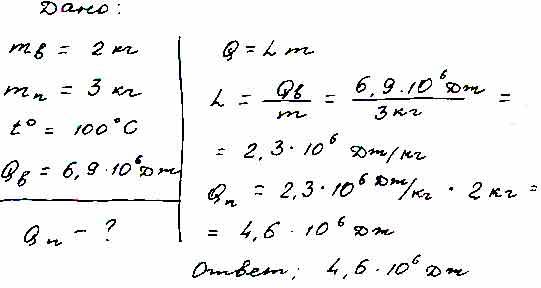 Дано:
mв = 2 кг
mп = 3 кг
t° = 100°C
Qв = 6,9·10⁶ Дж
Qп - ?
Q = L m
L = Qв/m = 6,9·10⁶ Дж/3 кг =
= 2,3·10⁶ Дж/кг
Qп = 2,3·10⁶ Дж/кг · 2 кг =
= 4,6·10⁶ Дж
Ответ: 4,6·10⁶ Дж